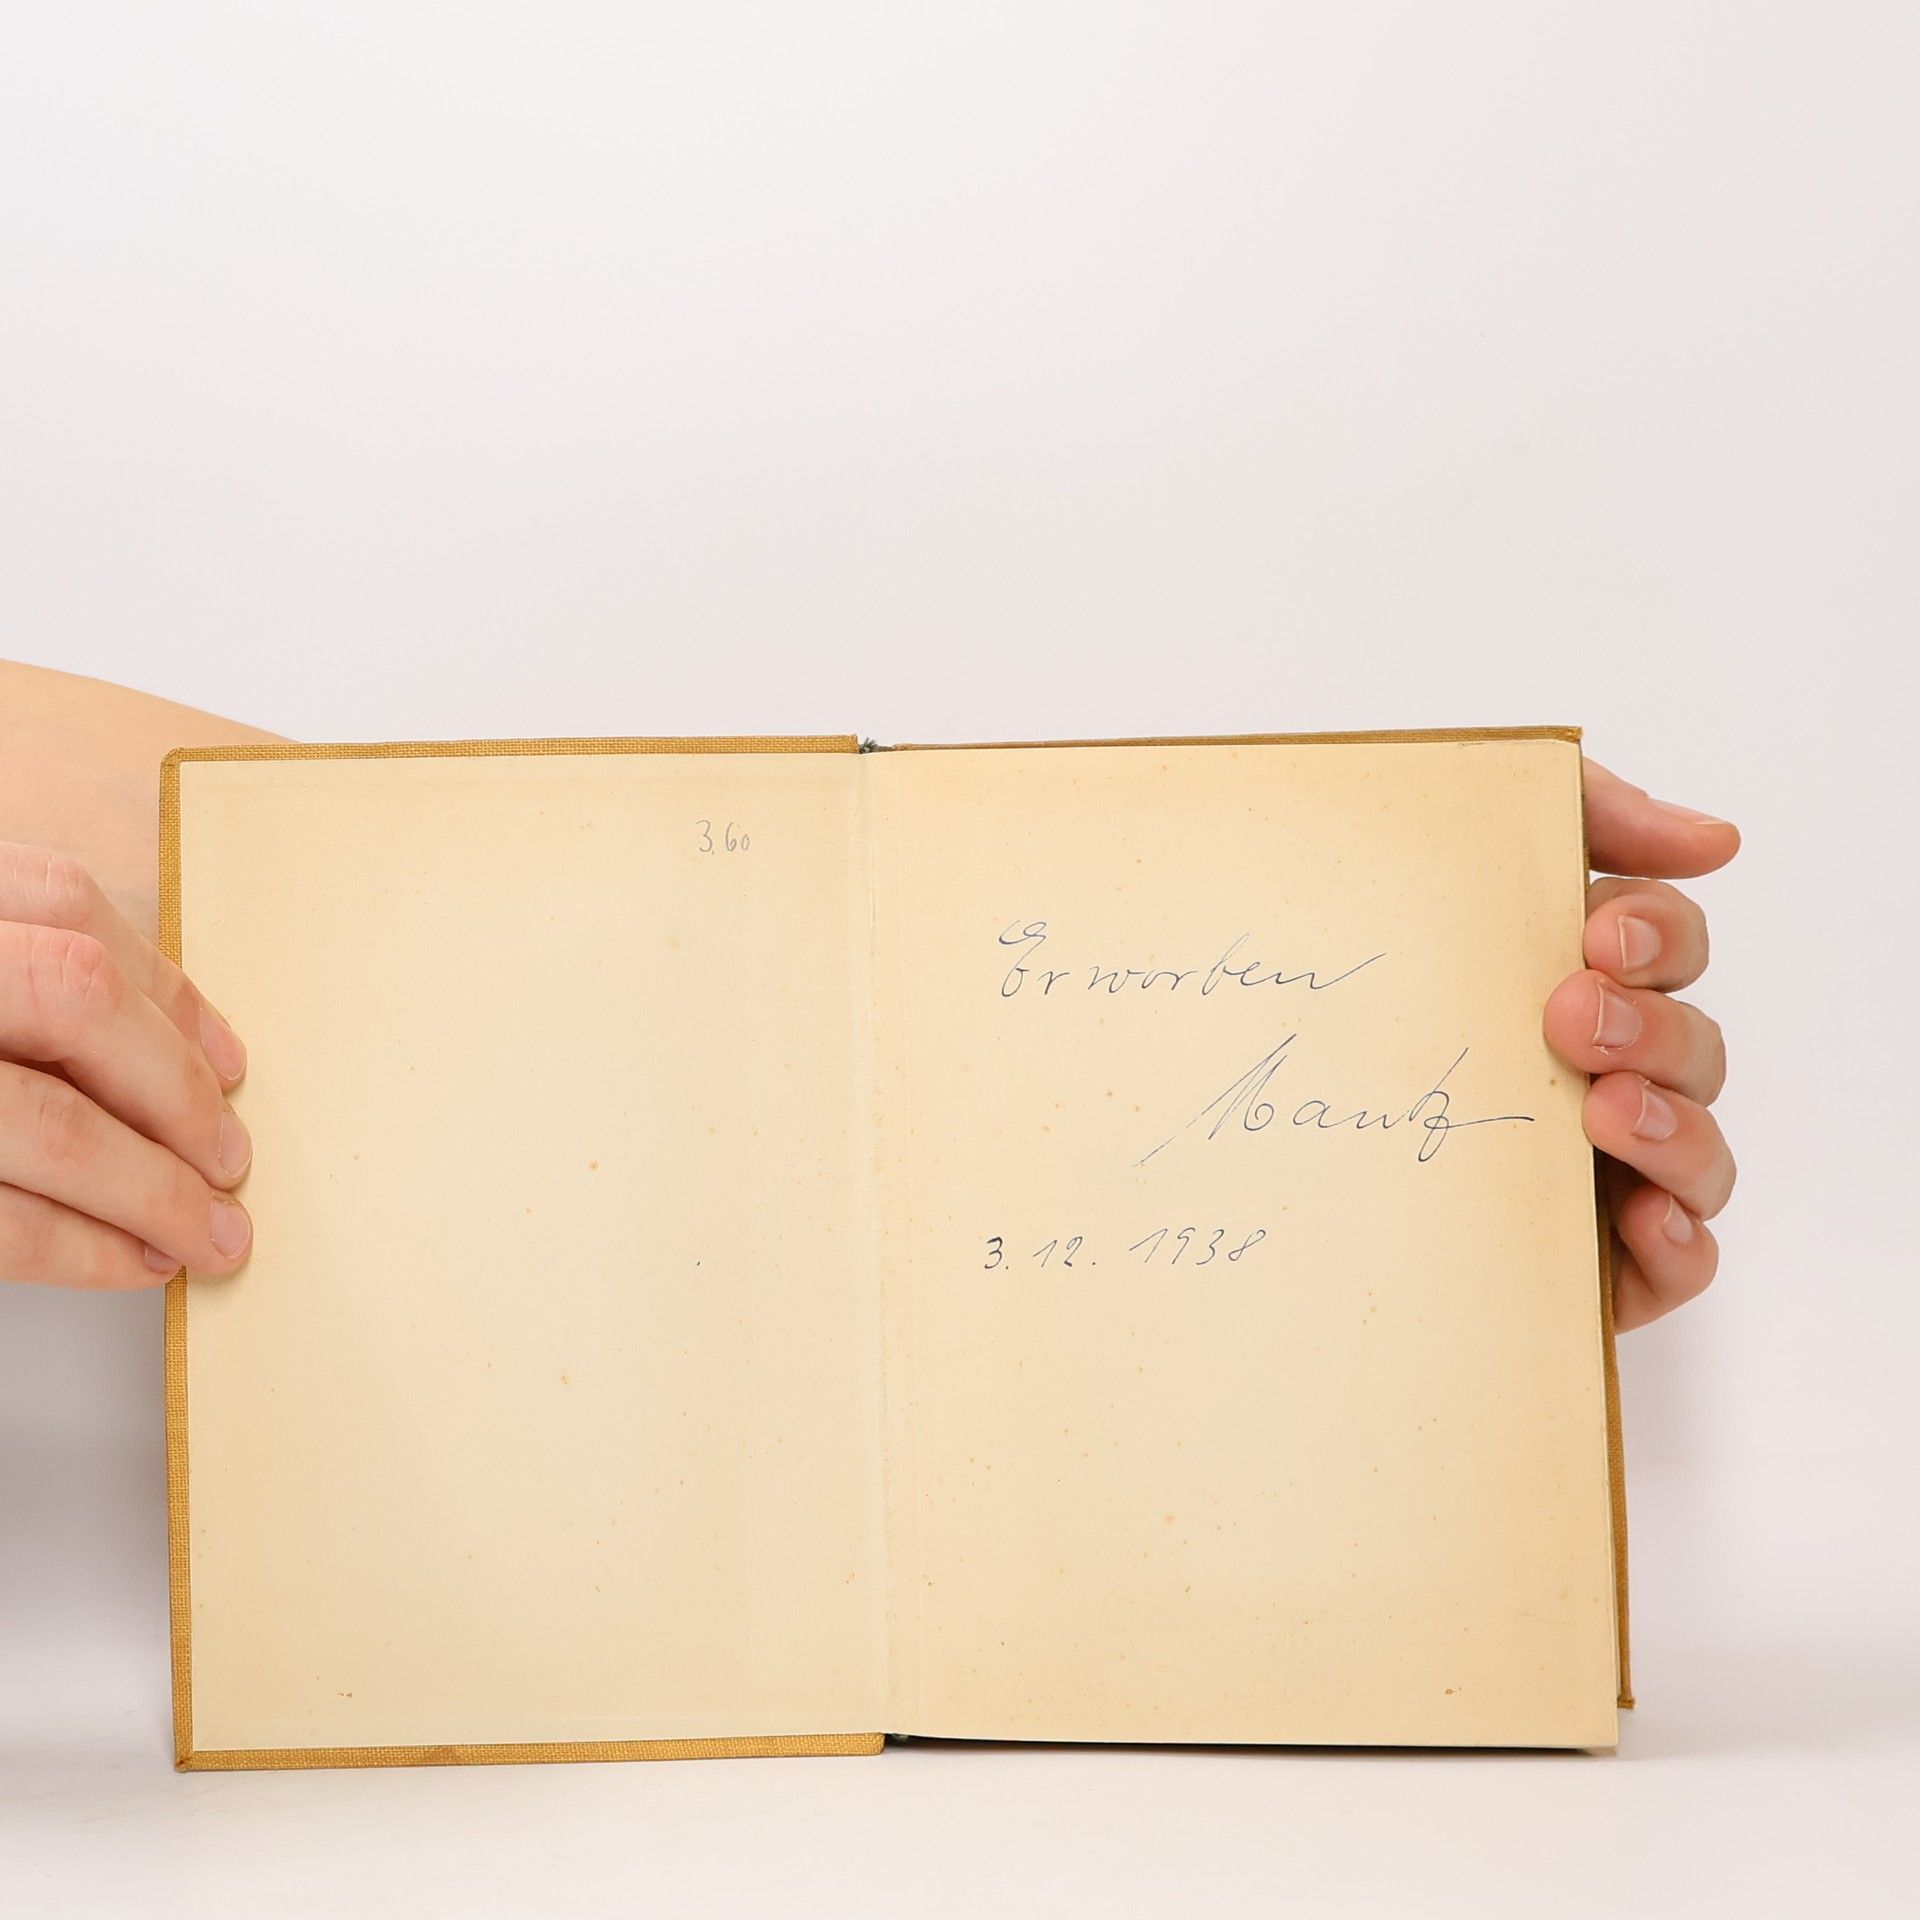 3.60
Erworben
Mantz
3. 12. 1938